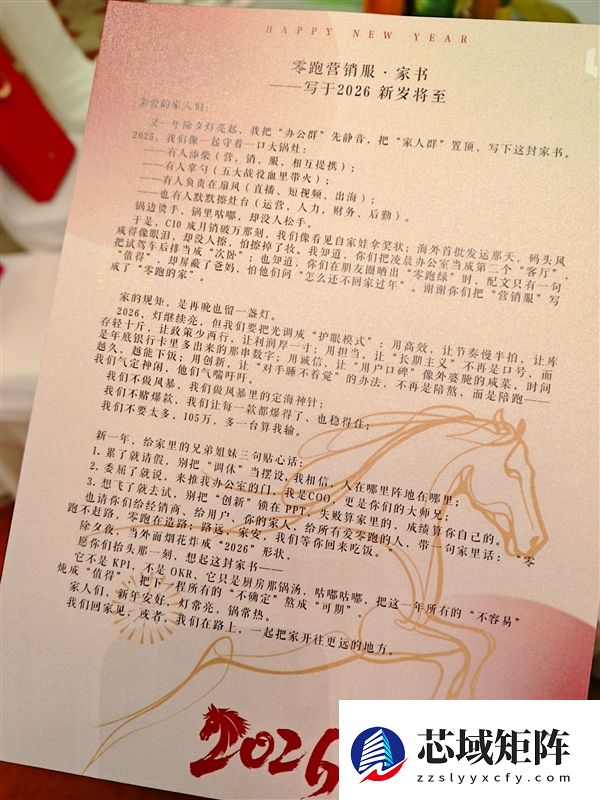 HAPPY NEW YEAR
零跑营销服·家书
——写于2026 新岁将至
亲爱的家人们:
又一年除夕灯亮起,我把“办公群”先静音,把“家人群”置顶,写下这封家书。
2025,我们像一起守着一口大锅灶:
——有人添柴(营,销,服,相互提携);
——有人掌勺(五大战役血里带火);
——有人负责在扇风(直播、短视频、出海);
——也有人默默擦灶台(运营,人力,财务、后勤)。
锅边烫手,锅里咕嘟,却没人松手。
于是,C10 成月销破万那刻,我们像看见自家娃拿奖状;海外首批发运那天,码头风
咸得像眼泪,却没人擦,怕擦掉了妆。我知道,你们把凌晨办公室当成第二个“客厅”,
把试驾车后排当成“次卧”;也知道,你们在朋友圈晒出“零跑绿”时,配文只有一句
“值得”,却屏蔽了爸妈,怕他们问“怎么还不回家过年”。谢谢你们把“营销服”写
成了“零跑的家”。
家的规矩,是再晚也留一盏灯。
2026,灯继续亮,但我们要把光调成“护眼模式”:用高效,让节奏慢半拍,让库
存轻十斤,让政策少两行,让利润厚一寸;用担当,让“长期主义”不再是口号,而
是年底银行卡里多出来的那串数字;用诚信,让“用户口碑”像外婆腌的咸菜,时间
越久,越能下饭;用创新,让“对手睡不着觉”的办法,不再是陪熬,而是陪跑——
我们气定神闲,他们气喘吁吁。
我们不做风暴,我们做风暴里的定海神针;
我们不赌爆款,我们让每一款都爆得了、也稳得住;
我们不要太多,105万,多一台算我输。
新一年,给家里的兄弟姐妹三句贴心话:
1.累了就请假,别把“调休”当摆设,我相信,人在哪里阵地在哪里;
2.委屈了就说,来推我办公室的门,我是COO,更是你们的大师兄;
3.想飞了就去试,别把“创新”锁在PPT,失败算家里的,成绩算你自己的。
也请你们给经销商、给用户、你的家人,给所有爱零跑的人,带一句家里话:“零
跑不赶路,零跑在造路;路远,家安,我们等你回来吃饭。”
除夕夜,当外面烟花炸成“2026”形状,
愿你们抬头那一刻,想起这封家书——
它不是 KPI,不是 OKR,它只是厨房那锅汤,咕嘟咕嘟,把这一年所有的“不容易”
炖成“值得”,把下一程所有的“不确定”熬成“可期”。
家人们,新年安好,灯常亮,锅常热。
我们回家见;或者,我们在路上,一起把家开往更远的地方。
2026
芯域矩阵
zzslyyxcfy.com